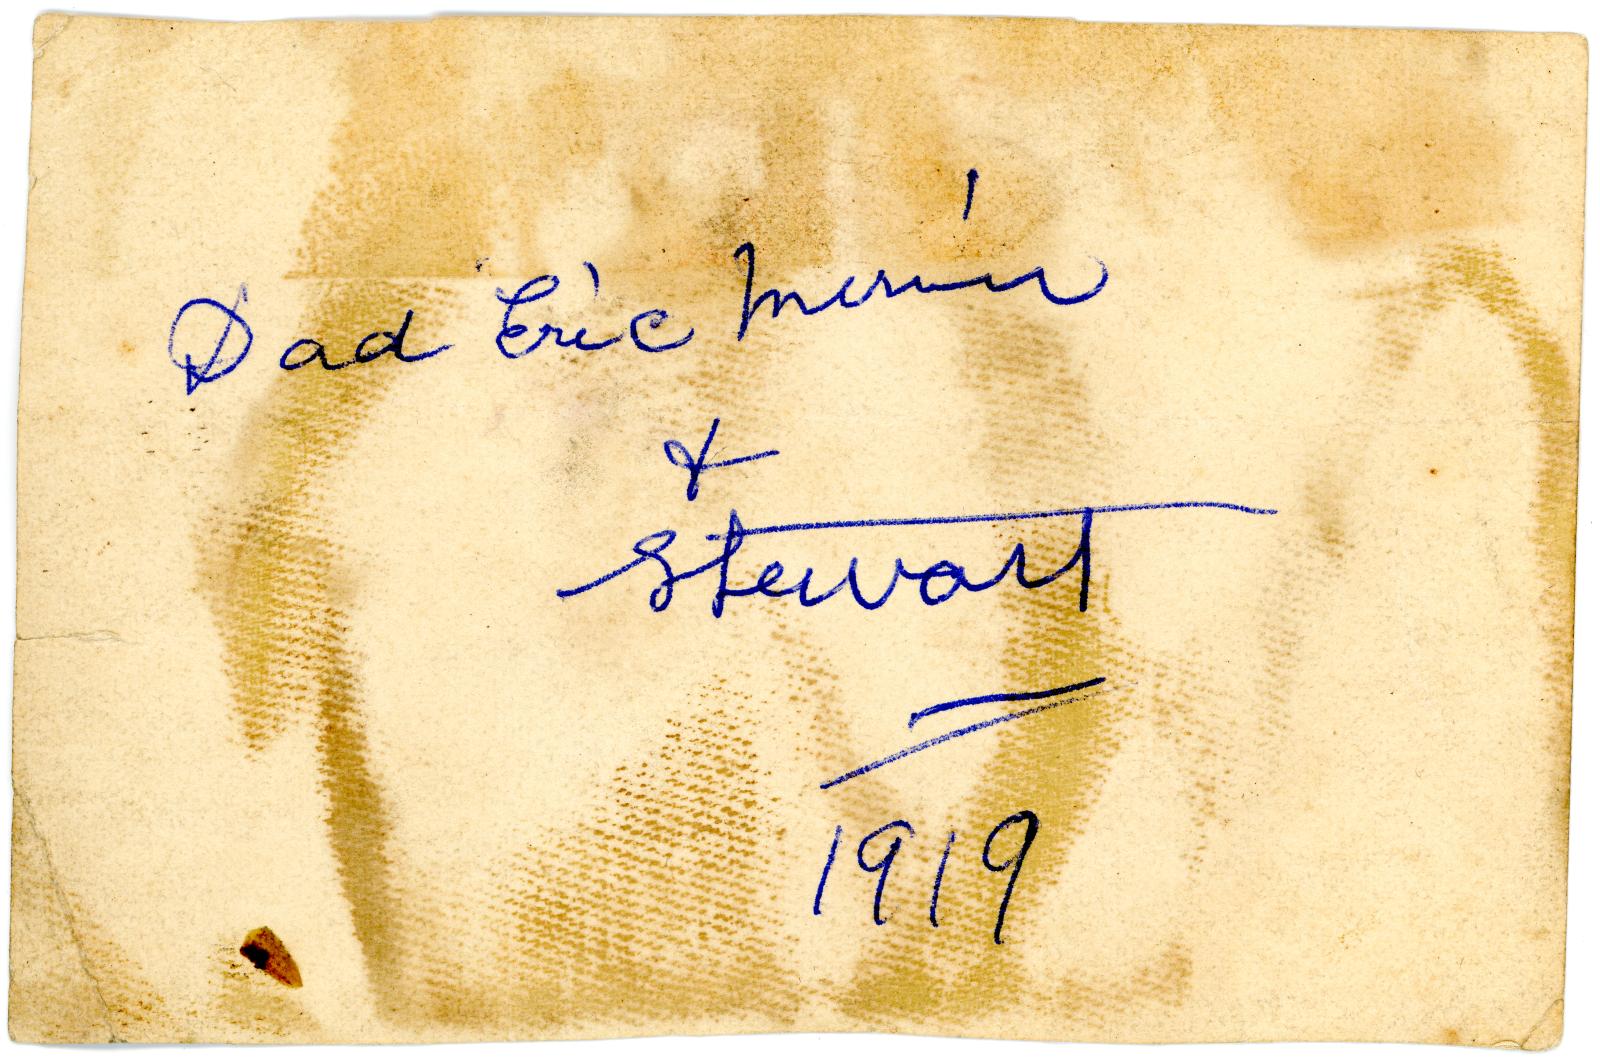 Dad Eric Mervin
&
Stewart
1919